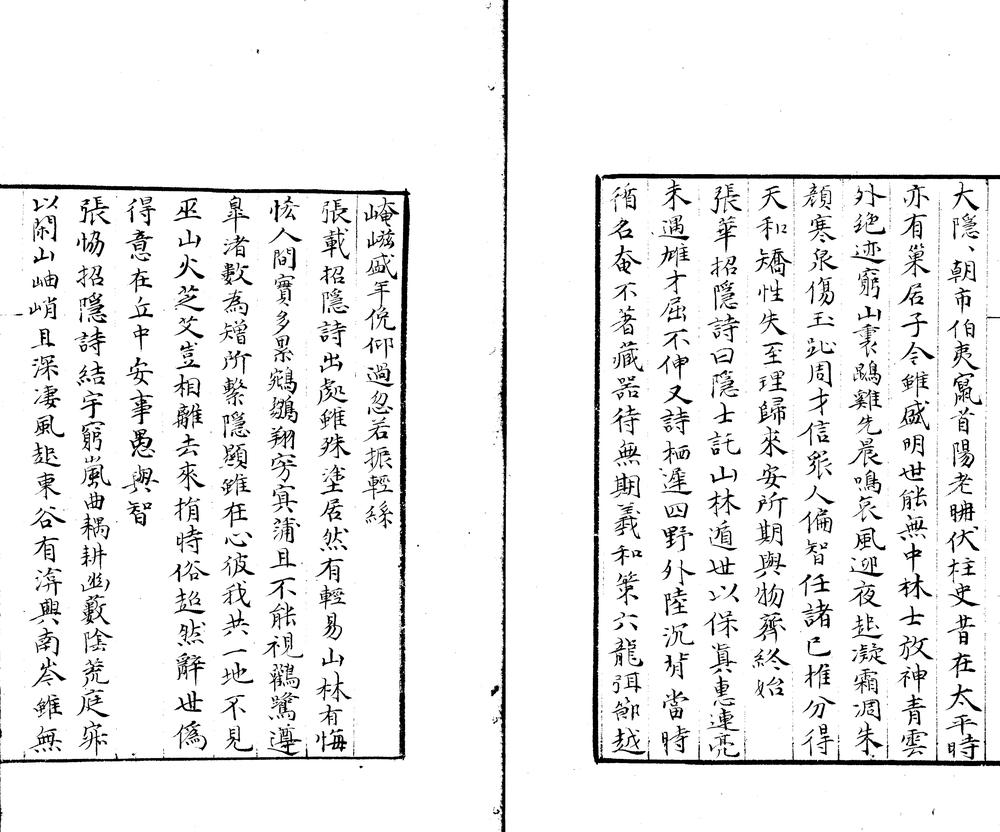 大隱、朝市伯夷竄首陽老聃伏柱史昔在太平時
亦有巢居子今雖盛明世能無中林士放神青雲
外絶迹窮山裏鵾雞先晨鳴哀風迎夜起凝霜凋朱
顔寒泉傷玉趾周才信衆人偏智任諸已推分得
天和矯性失至理歸來安所期與物齊終始
張華招隱詩曰隱士託山林遁世以保眞惠連亮
未遇雄才屈不伸又詩栖遲四野外陸沉背當時
循名奄不著藏器待無期羲和策六龍弭節越
崦嵫盛年俛仰過忽若振輕絲
張載招隱詩出處雖殊塗居然有輕易山林有悔
恡人間實多累鵷鶵翔穷冥蒲且不能視鸛鷺遵
皐渚數為矰所繫隱顯雖在心彼我共一地不見
巫山火芝艾豈相離去來捐時俗超然辭世偽
得意在丘中安事愚與智
張恊招隱詩結宇窮嵐曲耦耕幽藪陰荒庭寂
以閑山岫峭且深凄風起東谷有渰興南岑雖無